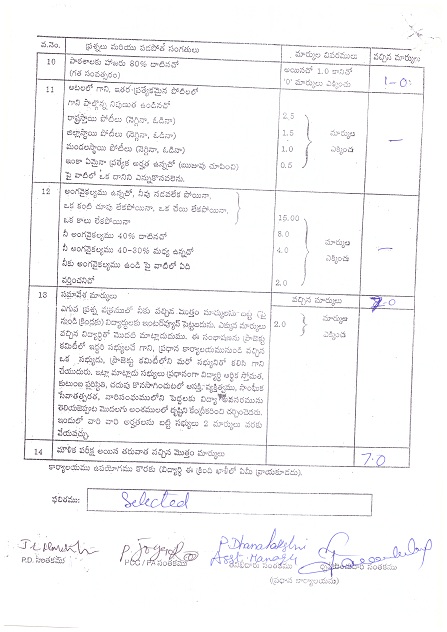 వ.నెం. ప్రశ్నలు మరియు పడపోత సంగతులు మార్కుల వివరములు వచ్చిన మార్కులు
10 పాఠశాలకు హాజరు 80% దాటినచో అయినచో 1.0 కానిచో
(గత సంవత్సరం) '0' మార్కులు ఎక్కించు 1-0
11 ఆటలలో గాని, ఇతర ప్రత్యేకమైన పోటీలలో
గాని పాల్గొన్న నిపుణుత ఉండినచో
రాష్ట్రస్థాయి పోటీలు (నెగ్గినా, ఓడినా) 2.5
జిల్లాస్థాయి పోటీలు (నెగ్గినా, ఓడినా) 1.5 మార్కులు
మండలస్థాయి పోటీలు (నెగ్గినా, ఓడినా) 1.0 ఎక్కించు
ఇంకా ఏమైనా ప్రత్యేక అర్హత ఉన్నచో (ఋజువు చూపించి) 0.5
పై వాటిలో ఒక దానిని ఎన్నుకొనవలెను.
12 అంగవైకల్యము ఉన్నచో, నీవు నడవలేక పోయినా,
ఒక కంటి చూపు లేకపోయినా, ఒక చేయి లేకపోయినా,
ఒక కాలు లేకపోయినా 15.00
నీ అంగవైకల్యము 40% దాటినచో 8.0
నీ అంగవైకల్యము 40-30% మధ్య ఉన్నచో 4.0 మార్కులు
నీకు అంగవైకల్యము ఉండి పై వాటిలో ఏది ఎక్కించు
వర్తించనిచో 2.0
13 సమావేశ మార్కులు వచ్చిన మార్కులు 7.0
ఎగువ ప్రశ్న పత్రములో నీకు వచ్చిన మొత్తం మార్కులను బట్టి (పై
నుండి క్రిందకు) విద్యార్థులకు ఇంటర్‌వ్యూన్ పెట్టబడును. ఎక్కువ మార్కులు 2.0 మార్కులు
వచ్చిన విద్యార్థితో మొదట మాట్లాడుదుము. ఈ సంభాషణను ప్రాజెక్టు ఎక్కించు
కమిటీలో ఇద్దరి సభ్యులచే గాని, ప్రధాన కార్యాలయమునుండి వచ్చిన
ఒక సభ్యుడు, ప్రాజెక్టు కమిటీలోని మరో సభ్యునితో కలిసి గాని
చేయుదురు. ఇట్లా మాట్లాడు సభ్యులు ప్రధానంగా విద్యార్థి ఆర్థిక స్తోమత,
కుటుంబ పరిస్థితి, చదువు కొనసాగించుటలో ఆసక్తి, వ్యక్తిత్వము, సాంఘీక
ఇందులో వారి వారి అర్హతలను బట్టి సభ్యులు 2 మార్కులు వరకు
వేయవచ్చు.
14 మౌఖిక పరీక్ష అయిన తరువాత వచ్చిన మొత్తం మార్కులు 7.0
కార్యాలయము ఉపయోగము కొరకు (విద్యార్థి ఈ క్రింది ఖాళీలో ఏమీ వ్రాయకూడదు).
ఫలితము: Selected
P. Dhanalakshmi
Asst. Manager
P.D. సంతకము PDC / PA సంతకము సంతకము
(ప్రధాన కార్యాలయము)